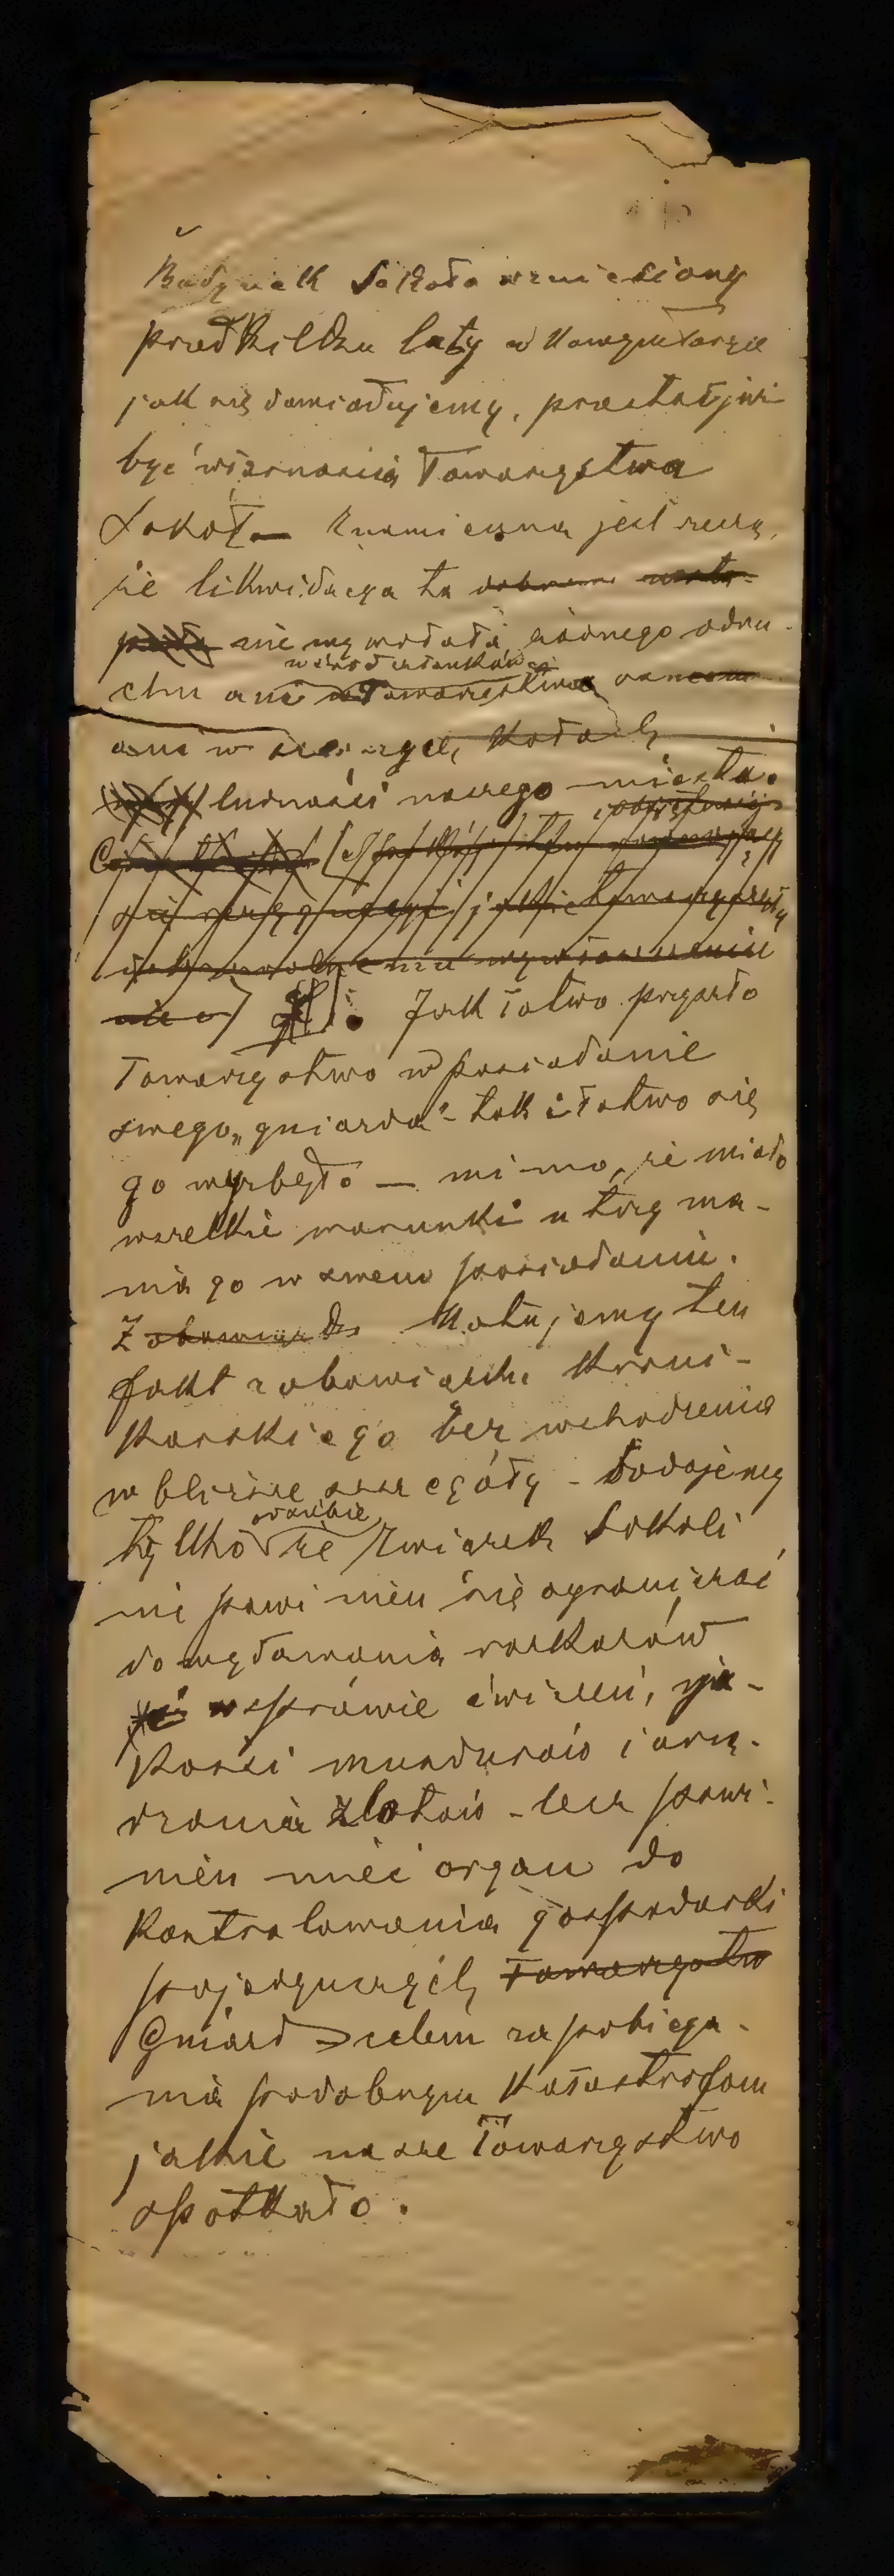 Budynek Sokoła wzniesiony
przed kilku laty w Nowymtargu
jak się dowiadujemy, przestał już
być własnością Towarzystwa
Sokół — Znamienną jest rzeczą,
że likwidacya ta
nie wywołała żadnego odru-
wśród członków
chu ani Towarzystwa
ani w szerszych kołach
ludności naszego miasta.
Jak łatwo przyszło
Towarzystwo w posiadanie
swego „gniazda" - tak i łatwo się
go wyzbyło — mimo, że miało
wszelkie warunki utrzyma-
nia go w swem posiadaniu.
Notujemy ten
fakt z obowiązku kroni-
karskiego bez wchodzenia
w bliższe szczegóły - dodajemy
tylko że Związek Sokoli
nie powinien się ograniczać
do wydawania rozkazów
w sprawie ćwiczeń, ja-
kości mundurów i urzą-
dzania zlotów - lecz powi-
nien mieć organ do
kontrolowania gospodarki
pojedynczych Towarzystw
Gniazd celem zapobiega-
nia podobnym katastrofom
jakie nasze Towarzystwo
spotkało.